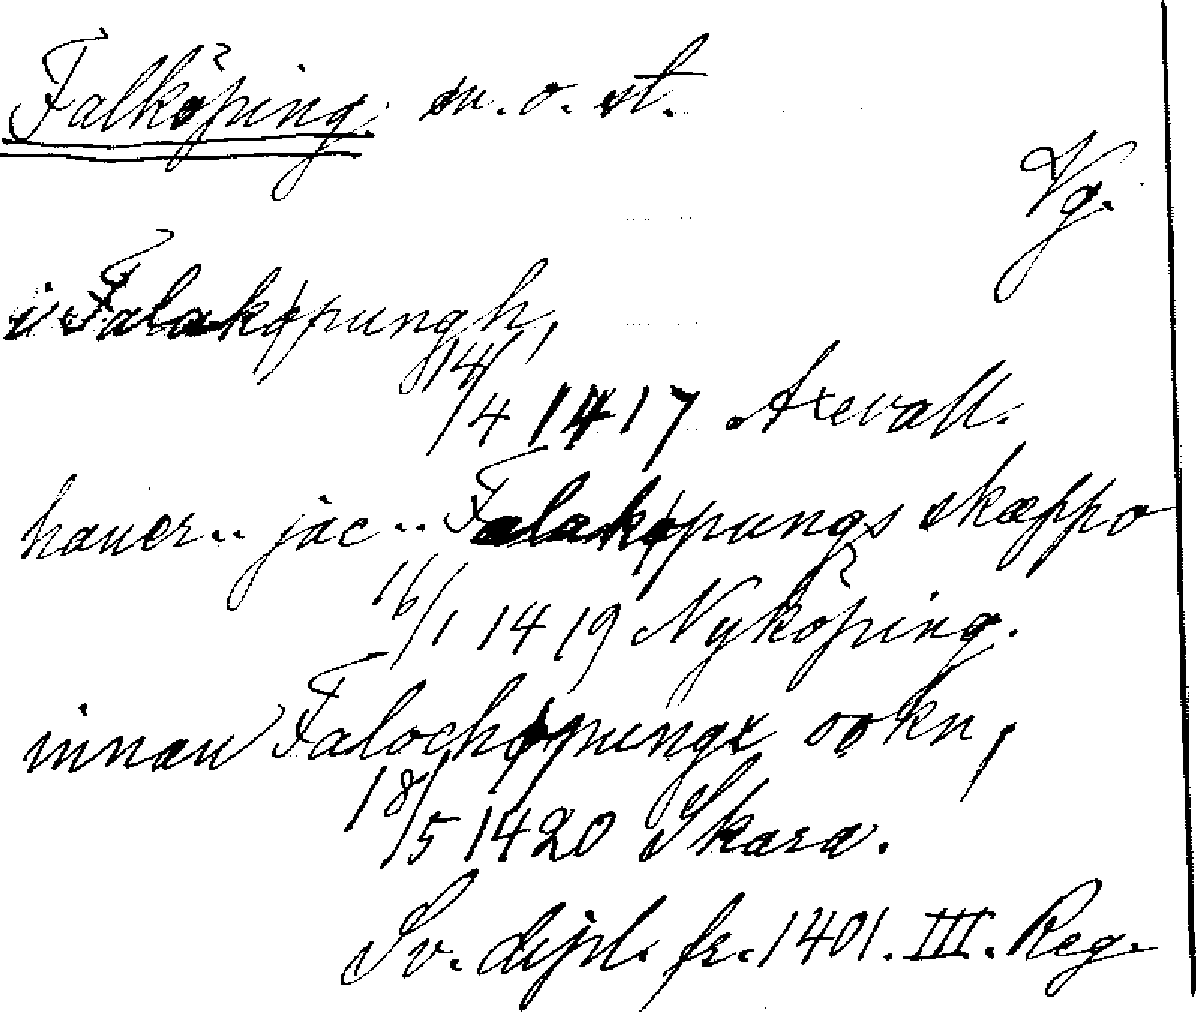 Falköping sn. o. st.
Vg.
i Falakøpungh,
14/4 1417 Axevall.
hauer.. jac.. Falakøpungs skæppo
16/1 1419 Nyköping.
innan Falochøpungx sokn,
18/5 1420 Skara.
Sv. dipl. fr. 1401. III. Reg.